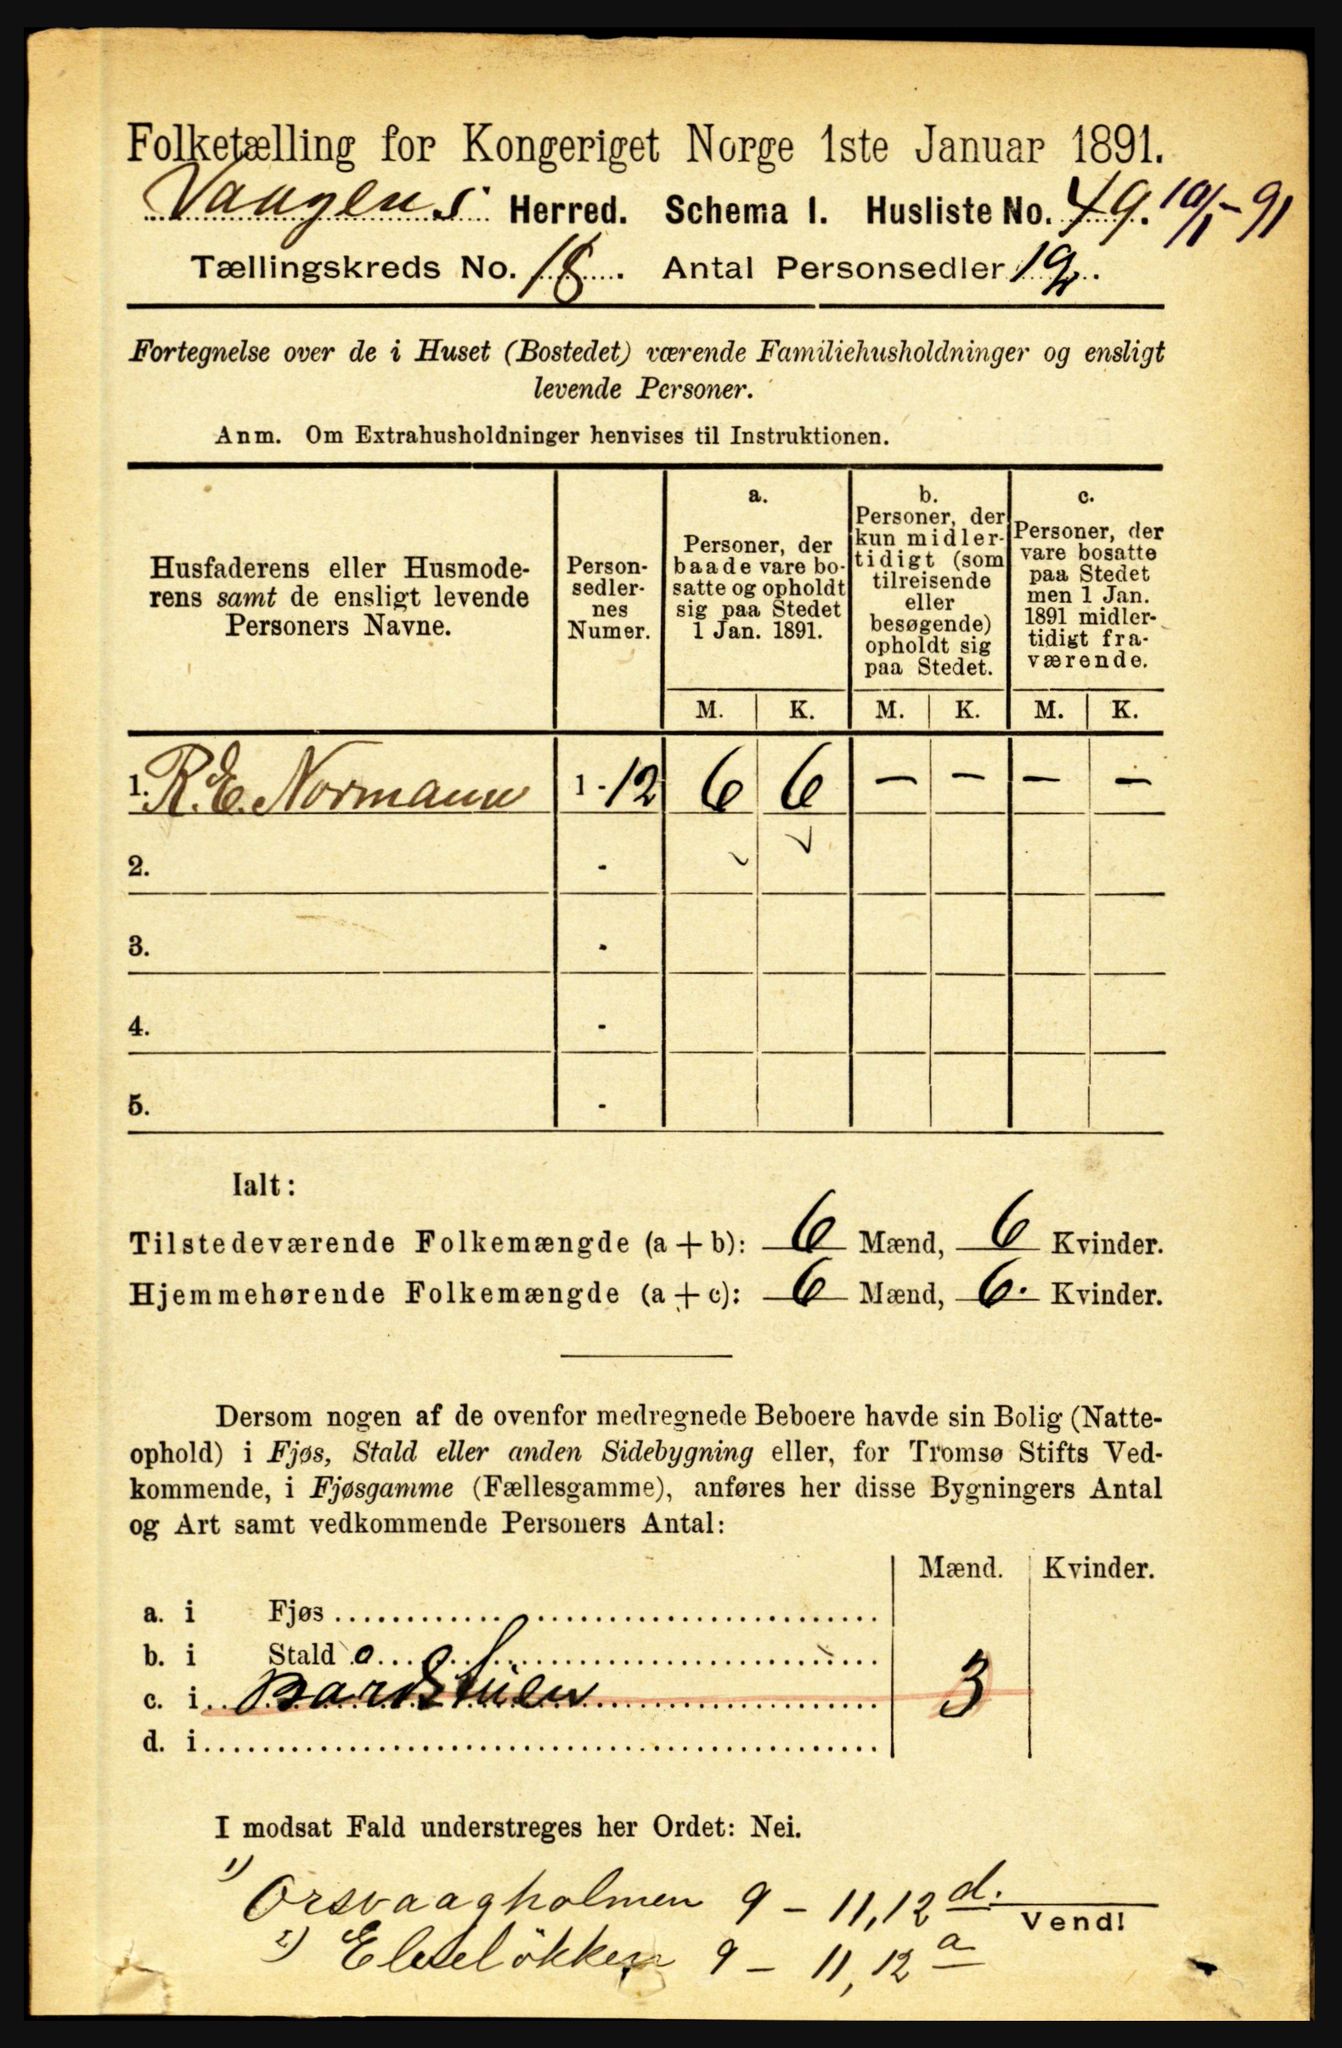 Folketælling for Kongeriget Norge 1ste Januar 1891.
Vaagens Herred. Schema I. Husliste No. 49. 10/1-91
Tællingskreds No. 18. Antal Personsedler 12.
Fortegnelse over de i Huset (Bostedet) værende Familiehusholdninger og ensligt
levende Personer.
Anm. Om Extrahusholdninger henvises til Instruktionen.
Husfaderens eller Husmode-
rens samt de ensligt levende
Personers Navne.
Person-
sedler-
nes
Numer.
a.
Personer, der
baade vare bo-
satte og opholdt
sig paa Stedet
1 Jan. 1891.
b.
Personer, der
kun midler-
tidigt (som
tilreisende
eller
besøgende)
opholdt sig
paa Stedet.
c.
Personer, der
vare bosatte
paa Stedet
men 1 Jan.
1891 midler-
tidigt fra-
værende.
M. K. M. K. M. K.
1. R. E. Normann 1 - 12 6 6 — — — —
2. -
3. -
4. -
5. -
Ialt:
Tilstedeværende Folkemængde (a + b): 6 Mænd, 6 Kvinder.
Hjemmehørende Folkemængde (a + c): 6 Mænd, 6. Kvinder.
Dersom nogen af de ovenfor medregnede Beboere havde sin Bolig (Natte-
ophold) i Fjøs, Stald eller anden Sidebygning eller, for Tromsø Stifts Ved-
kommende, i Fjøsgamme (Fællesgamme), anføres her disse Bygningers Antal
og Art samt vedkommende Personers Antal:
Mænd. Kvinder.
a. i Fjøs
b. i Stald
c. i Bardstuen 3
d. i
I modsat Fald understreges her Ordet: Nei.
1) Orsvaagholmen 9 – 11,12 d.
Vend!
2) 9 – 11,12 a